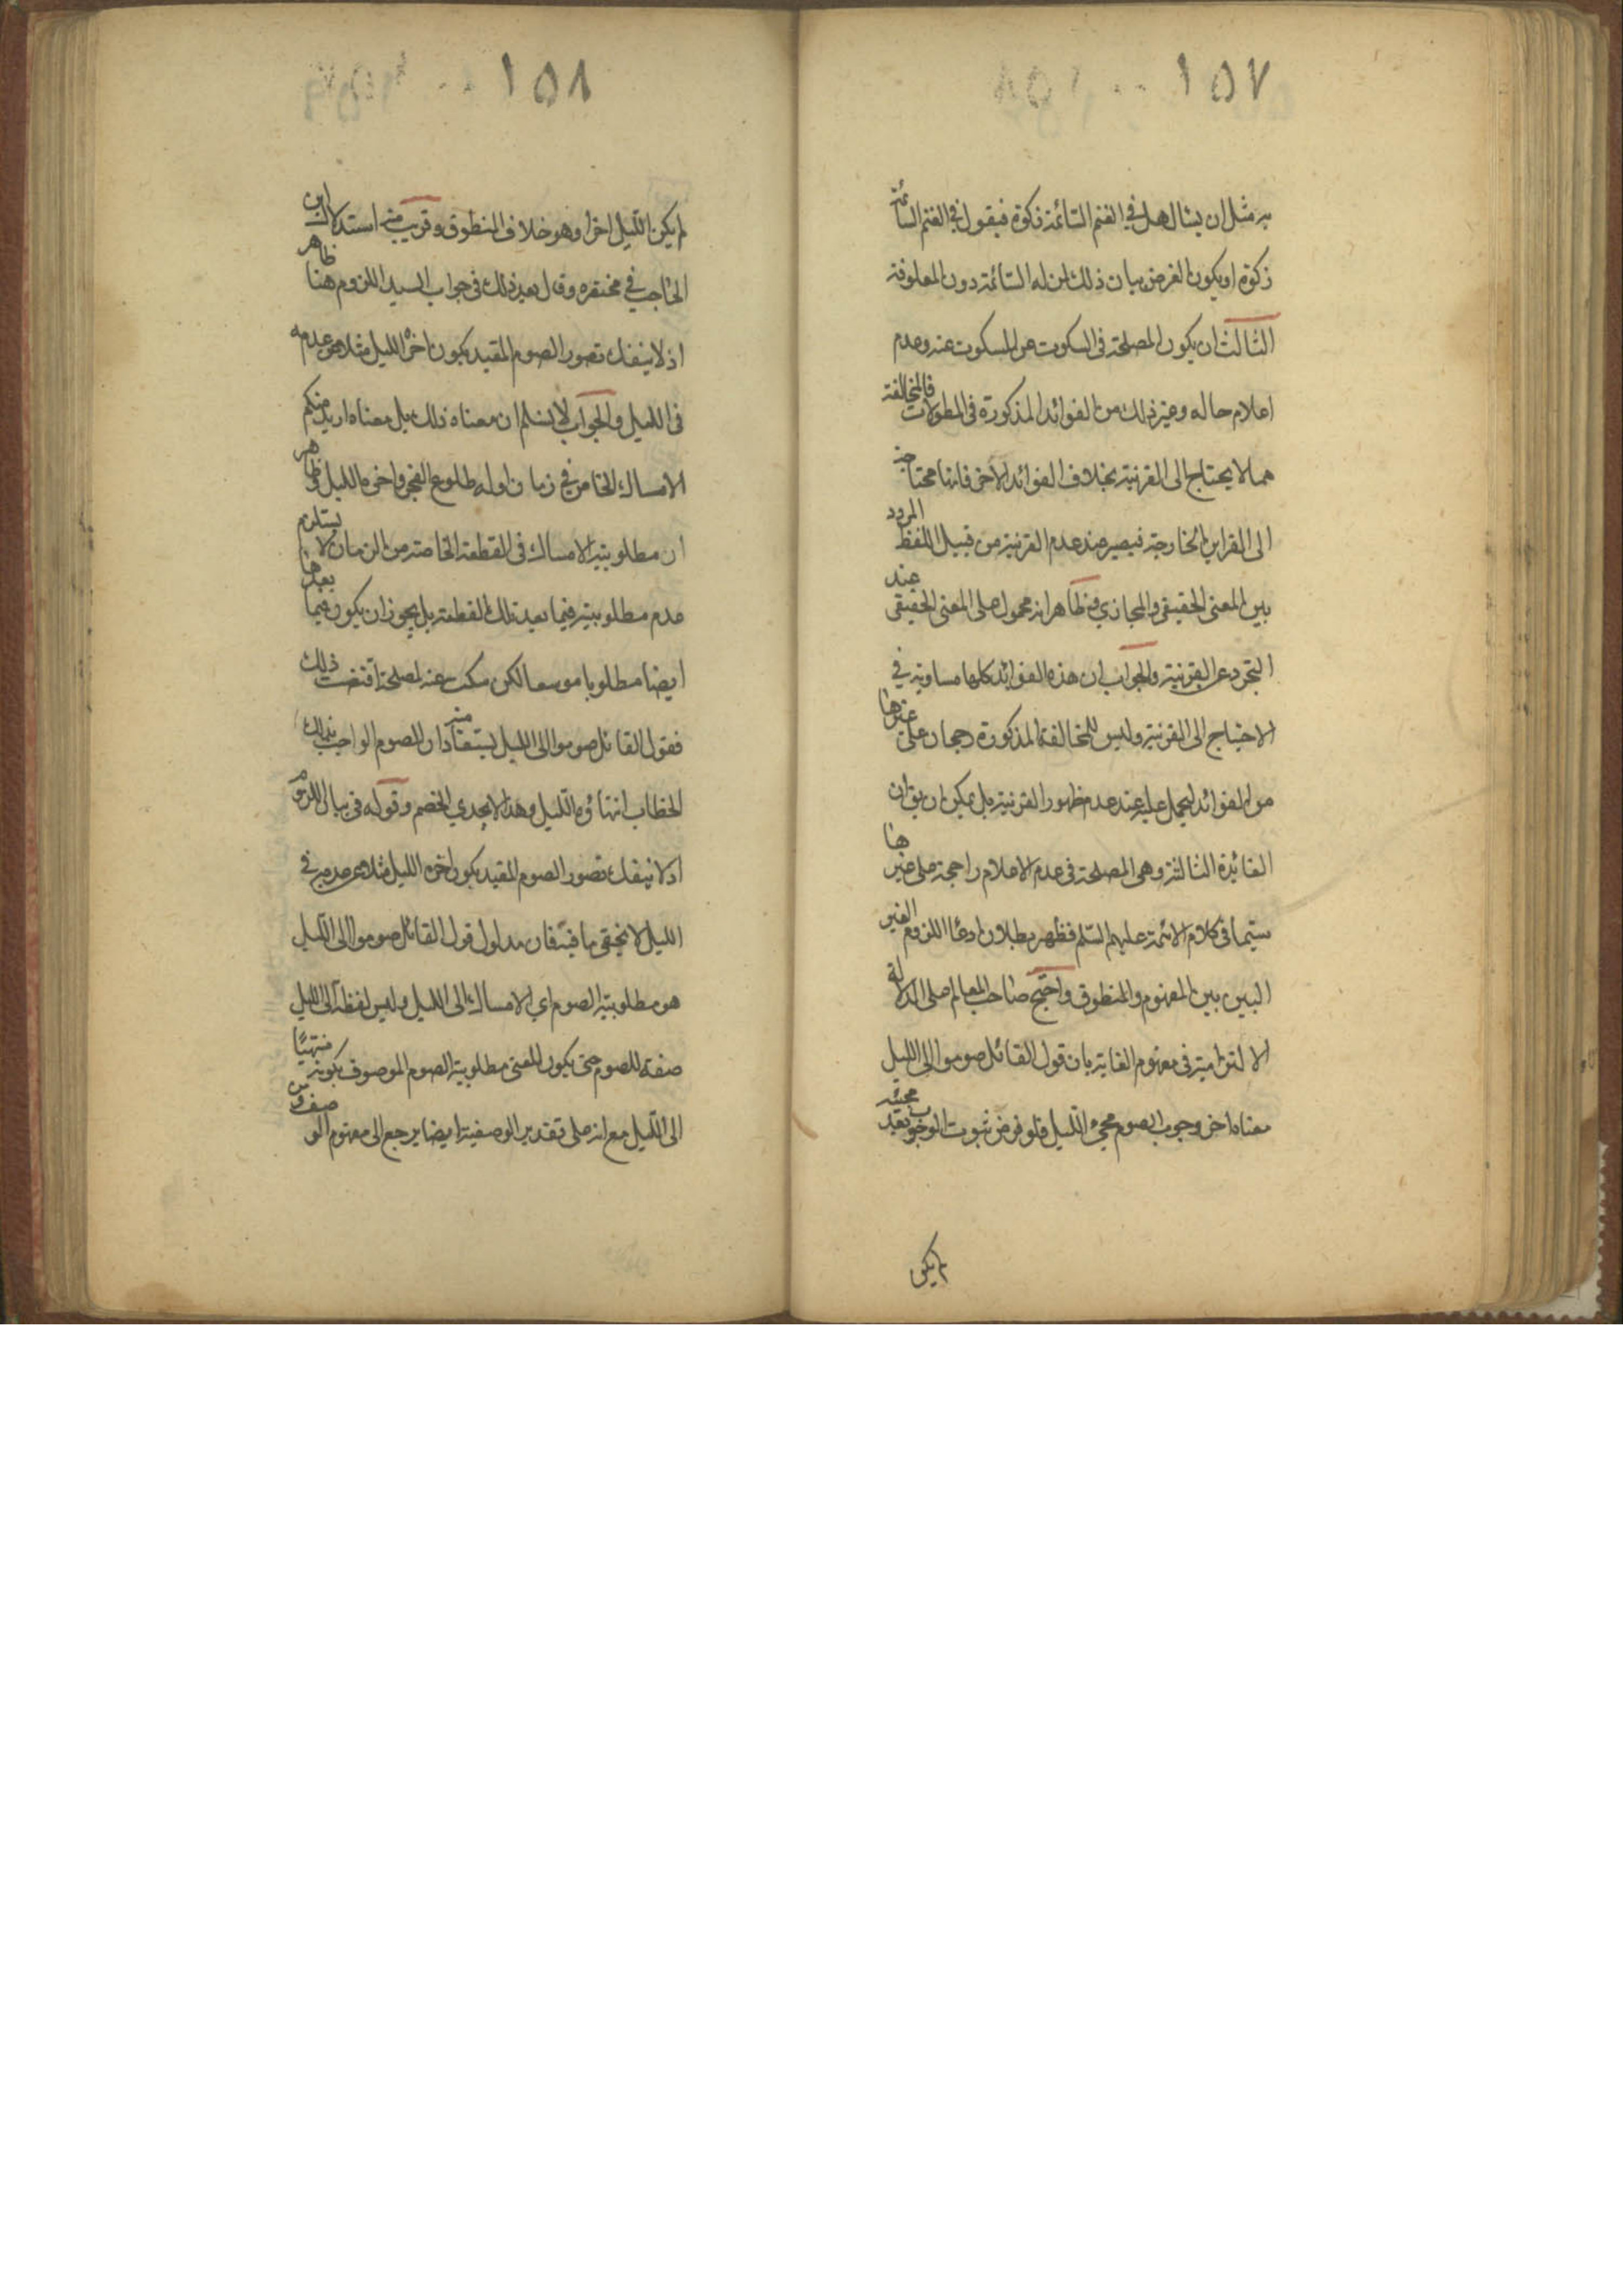 ١٥٧
به مثل ان يسال هل في الغنم السائمة زكوة فيقول في الغنم السائمة
زكوة او يكون الغرض بيان ذلك لمن له السائمة دون المعلوفة
الثالث ان يكون المصلحة في السكوت عن المسكوت عنه وعدم
اعلام حاله وغير ذلك من الفوائد المذكورة في المطولات فالمخالفة
مما لا يحتاج الى القرينة بخلاف الفوائد الاخر فانها محتاجة
الى القراين الخارجة فيصير عند عدم القرينة من قبيل اللفظ المردد
بين المعنى الحقيقي والمجازي وظاهر انه محمول على المعنى الحقيقي عند
التجرد عن القرينة والجواب ان هذه الفوائد كلها مساوية في
الاحتياج الى القرينة وليس للمخالفة المذكورة رجحان على غيرها
من الفوائد ليحمل عليه عند عدم ظهور القرينة بل يمكن ان يق ان
الفائدة الثالثة وهي المصلحة في عدم الاعلام راجحة على غيرها
سيما في كلام الائمة عليهم السلم فظهر بطلان ادعا اللزوم الغير
البين بين المفهوم والمنطوق واحتج صاحب المعالم على الدلالة
الالتزامية في مفهوم الغاية بان قول القائل صوموا الى الليل
معناه اخر وجوب الصوم مجيء الليل فلو فرض ثبوت الوجوب بعد مجيئه
لم يكن
١٥٨
لم يكن الليل اخرا وهو خلاف المنطوق وقريب منه استدلال ابن
الحاجب في مختصره وقال بعد ذلك في جواب السيد اللزوم هنا ظاهر
اذ لا ينفك تصور الصوم المقيد بكون اخره الليل مثلا عن عدمه
في الليل والجواب لا نسلم ان معناه ذلك بل معناه اريد منكم
الامساك الخاص في زمان اوله طلوع الفجر واخره الليل وظاهر
ان مطلوبية الامساك في القطعة الخاصة من الزمان لا يستلزم
عدم مطلوبيته فيما بعد تلك القطعة بل يجوز ان يكون فيما بعدها
ايضا مطلوبا موسعا لكن سكت عنه لمصلحة اقتضت ذلك
فقول القائل صوموا الى الليل يستفاد منه ان الصوم الواجب بذلك
الخطاب انتهاؤه الليل وهذا لا يجدي الخصم وقوله في بيان اللزوم
اذ لا ينفك تصور الصوم المقيد بكون اخره الليل مثلا عن عدمه في
الليل لا يخفى ما فيه فان مدلول قول القائل صوموا الى الليل
هو مطلوبية الصوم اي الامساك الى الليل وليس لفظ الى الليل
صفة للصوم حتى يكون المعنى مطلوبية الصوم الموصوف بكونه منتهيا
الى الليل مع انه على تقدير الوصفية ايضا يرجع الى مفهوم الوصف